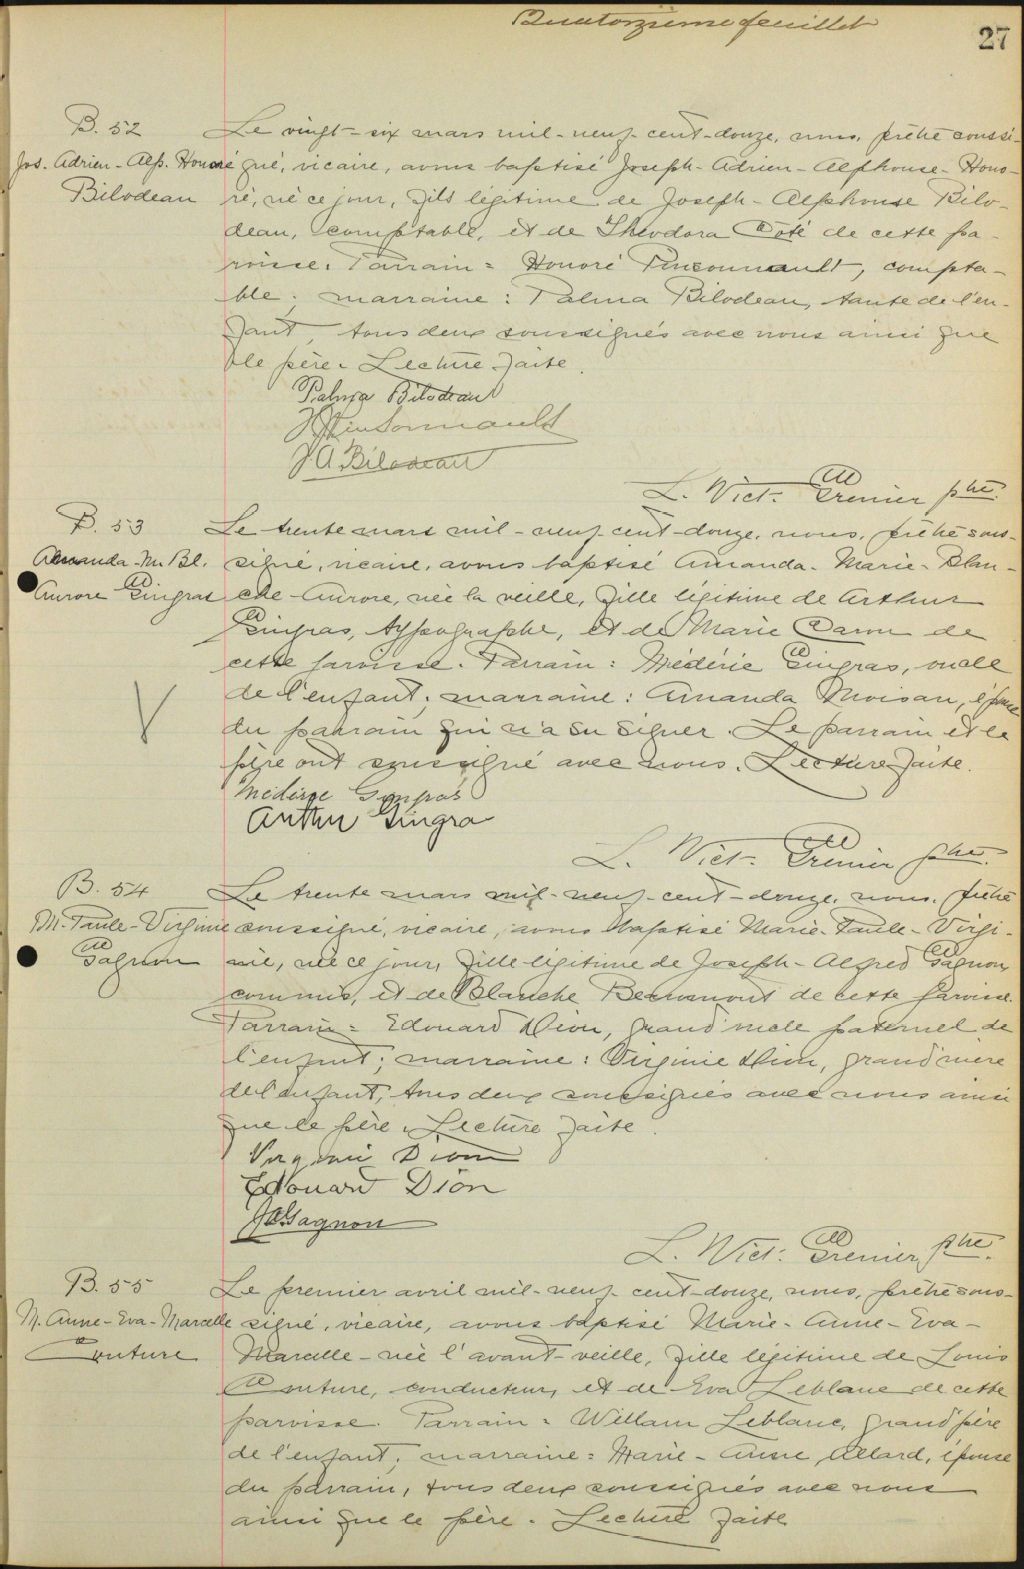 Quatorzième feuillet
27
B. 52
Jos. Adrien-Alp. Honoré
Bilodeau
Le vingt-six mars mil-neuf-cent-douze, nous, prêtre soussi-
gné, vicaire, avons baptisé Joseph-Adrien-Alphonse-Hono-
ré, né ce jour, fils légitime de Joseph-Alphonse Bilo-
deau, comptable, et de Théodora Côté de cette pa-
roisse. Parrain = Honoré Pinsonnault, compta-
ble; marraine: Palma Bilodeau, tante de l'en-
fant, tous deux soussignés avec nous ainsi que
le père. Lecture faite.
Palma Bilodeau
Pinsonnault
J. A. Bilodeau
L. Vict. Grenier ptre.
B. 53
Amanda-M. Bl.
Aurore Gingras
Le trente mars mil-neuf-cent-douze, nous, prêtre sous-
signé, vicaire, avons baptisé Amanda-Marie-Blan-
che-Aurore, née la veille, fille légitime de Arthur
Gingras, typographe, et de Marie Caron de
cette paroisse. Parrain: Médéric Gingras, oncle
de l'enfant; marraine: Amanda Moisan, épouse
du parrain qui n'a su signer. Le parrain et le
père ont soussigné avec nous. Lecture faite.
Médéric Gingras
Arthur Gingra
L. Vict. Grenier ptre.
B. 54
M.-Paule-Virginie
Gagnon
Le trente mars mil-neuf-cent-douze, nous, prêtre
soussigné, vicaire, avons baptisé Marie-Paule-Virgi-
nie, née ce jour, fille légitime de Joseph-Alfred Gagnon,
commis, et de Blanche de cette paroisse.
Parrain = Edouard Dion, grand'oncle paternel de
l'enfant; marraine: Virginie Dion, grand'mère
de l'enfant, tous deux soussignés avec nous ainsi
que le père. Lecture faite.
Virginie Dion
Edouard Dion
J A Gagnon
L. Vict. Grenier, ptre.
B. 55
M. Anne-Eva-Marcelle
Couture
Le premier avril mil-neuf-cent-douze, nous, prêtre sous-
signé, vicaire, avons baptisé Marie-Anne-Eva-
Marcelle-née l'avant-veille, fille légitime de Louis
Couture, conducteur, et de Eva Leblanc de cette
paroisse. Parrain = William Leblanc, grand'père
de l'enfant; marraine = Marie-Anne Allard, épouse
du parrain, tous deux soussignés avec nous
ainsi que le père. Lecture faite